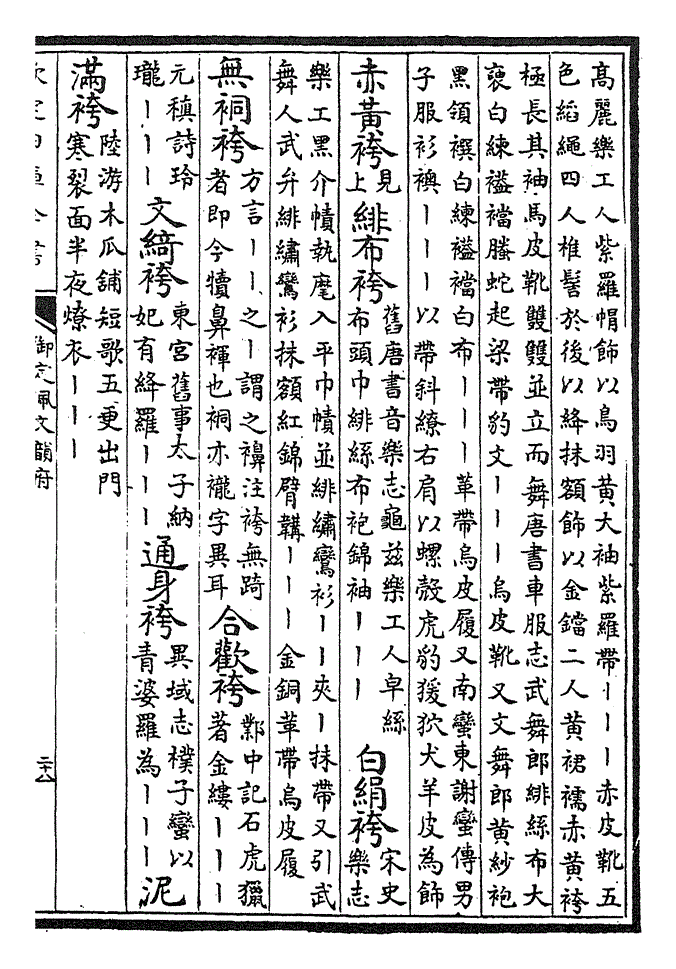 高麗樂工人紫羅帽飾以鳥羽黃大袖紫羅帶丨丨丨赤皮靴五
色縚繩四人椎髻於後以絳抹額飾以金鐺二人黃裙襦赤黃袴
極長其袖烏皮靴雙雙並立而舞唐書車服志武舞郎緋絲布大
褎白練䙅襠螣蛇起梁帶豹文丨丨丨烏皮靴又文舞郎黃紗袍
黑領襈白練䙅襠白布丨丨丨革帶烏皮履又南蠻東謝蠻傳男
子服衫襖丨丨丨以帶斜繚右肩以螺殻虎豹猨狖犬羊皮為飾
赤黃袴
見
上
緋布袴
舊唐書音樂志龜茲樂工人皁絲
布頭巾緋絲布袍錦袖丨丨丨
白絹袴
宋史
樂志
樂工黑介幘執麾人平巾幘並緋繡鸞衫丨丨夾丨抹帶又引武
舞人武弁緋繡鸞衫抹額紅錦臂韝丨丨丨金銅革帶烏皮履
無䘪袴
方言丨丨之丨謂之襣注袴無踦
者即今犢鼻褌也䘪亦襱字異耳
合歡袴
鄴中記石虎獵
著金縷丨丨丨
元稹詩玲
瓏丨丨丨
文綺袴
東宮舊事太子納
妃有絳羅丨丨丨
通身袴
異域志樸子蠻以
青婆羅為丨丨丨
泥
滿袴
陸游木瓜舖短歌五更出門
寒裂面半夜燎衣丨丨丨
欽定四庫全書
御定佩文韻府
二十八